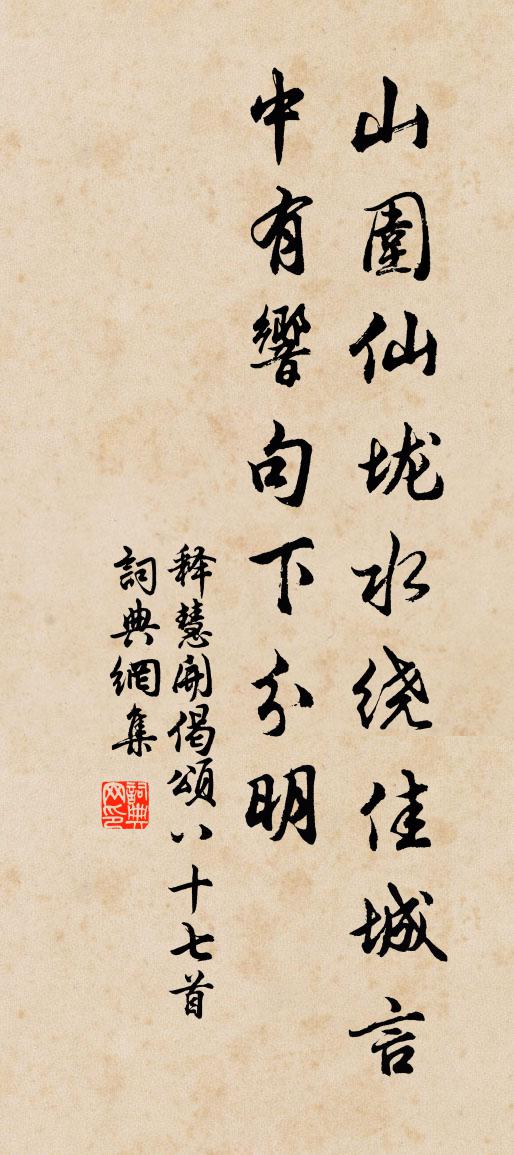 山圍仙垅水绕佳城言
中有響句下分明
释慧開偈頌八十七首
詞典網集
詞典
网印